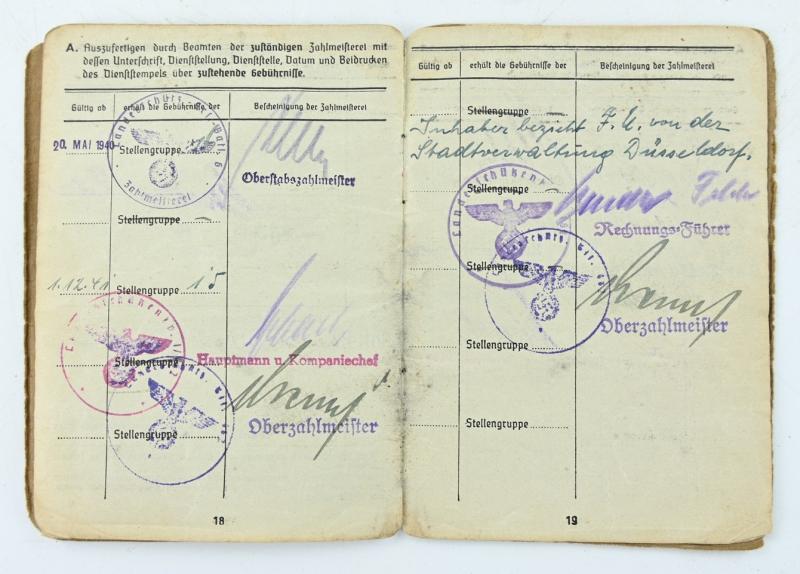 A. Auszufertigen durch Beamten der zuständigen Zahlmeisterei mit
dessen Unterschrift, Dienststellung, Dienststelle, Datum und Beidrucken
des Dienststempels über zustehende Gebührnisse.
Gültig ab erhält die Gebührnisse der Bescheinigung der Zahlmeisterei
20. MAI 1940 Stellengruppe
Zahlmeisterei
Oberstabszahlmeister
Stellengruppe
1.12.41 Stellengruppe 15
Stellengruppe Hauptmann u. Kompaniechef
Stellengruppe Oberzahlmeister
18
Gültig ab erhält die Gebührnisse der Bescheinigung der Zahlmeisterei
Stellengruppe
Inhaber bezieht F. U. von der
Stadtverwaltung Düsseldorf.
Stellengruppe
Rechnungs-Führer
Stellengruppe
Oberzahlmeister
Stellengruppe
Stellengruppe
19